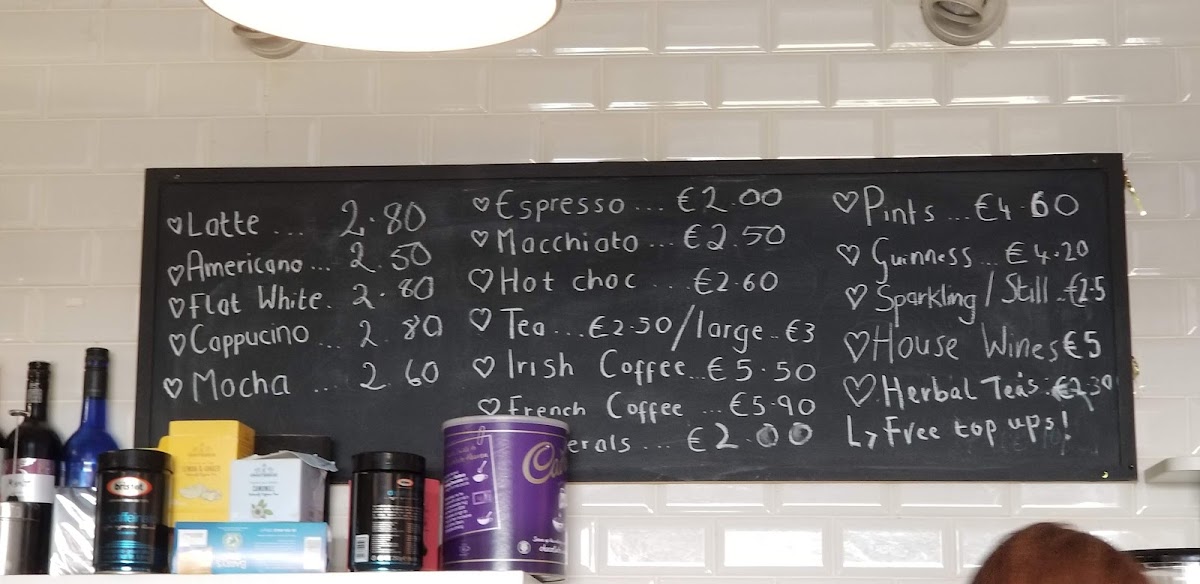 Latte ... 2.80
Americano... 2.50
Flat White. 2.80
Cappucino ... 2.80
Mocha ... 2.60
Espresso ... €2.00
Macchiato ... €2.50
Hot choc ... €2.60
Tea...€2.50/large..€3
Irish Coffee...€5.50
French Coffee ...€5.90
erals ... €2.00
Pints ...€4.60
Guinness ...€4.20
Sparkling/Still ..€2.5
House Wines €5
Herbal Tea's
↳ Free top ups!
bristot